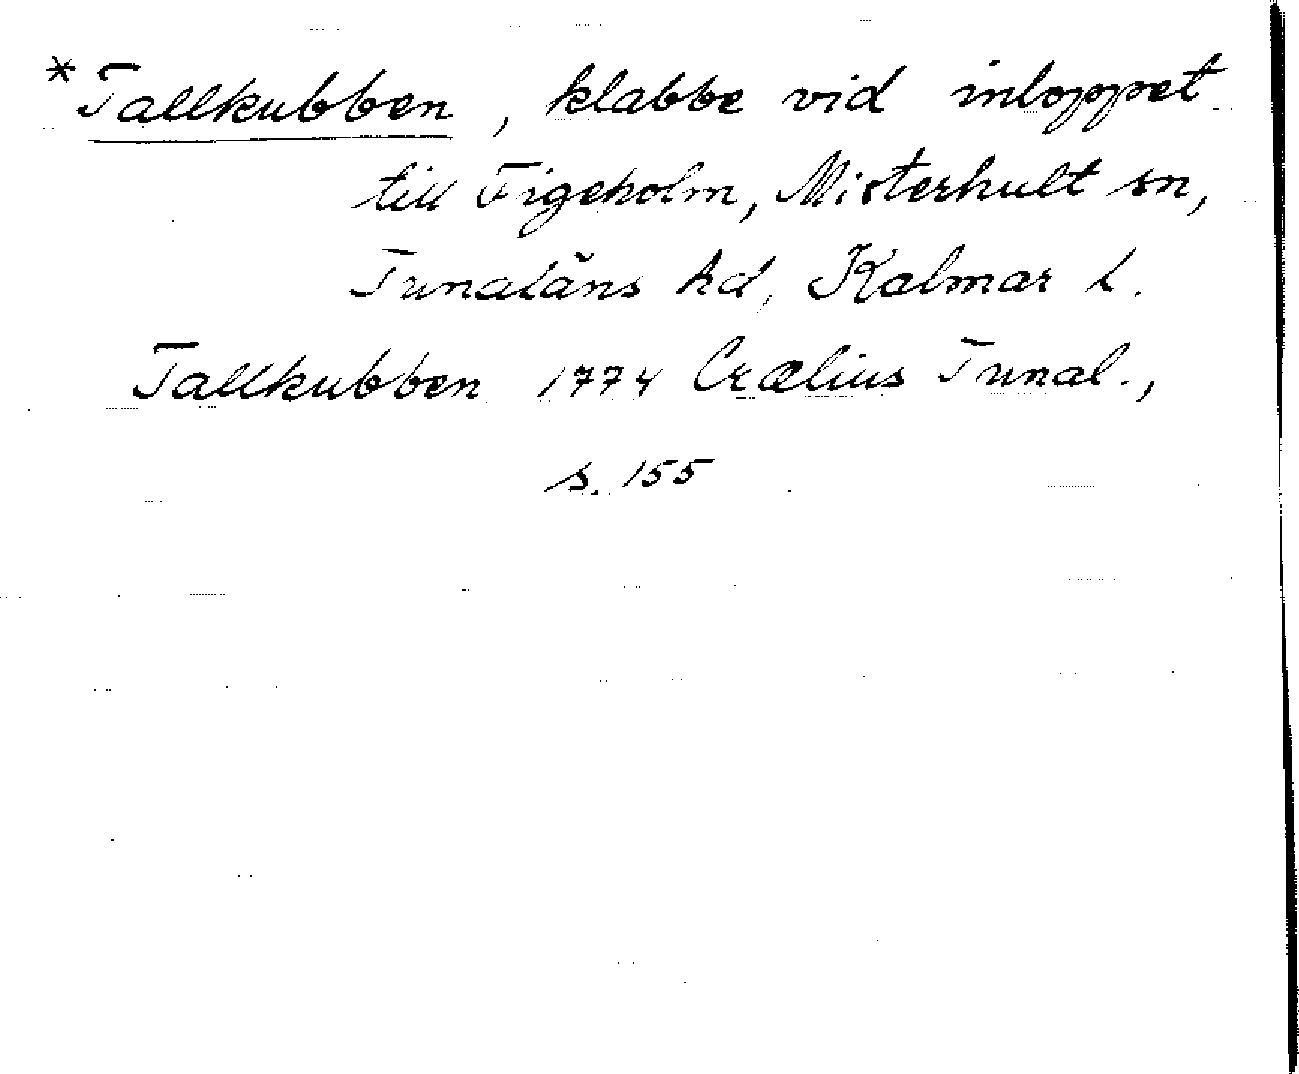 *Tallkubben, klabbe vid inloppet
till Figeholm, Misterhult sn,
Tunaläns hd, Kalmar l.
Tallkubben 1774 Crælius Tunal.,
s. 155